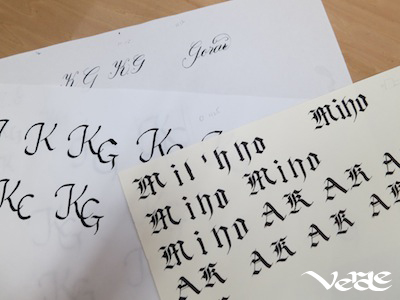 K G KG Goran
K KG KG
KC KG
Miho
Mil'hho
Miho Miho
Miho AK AK A
AK AK AK AK
AK
Verde